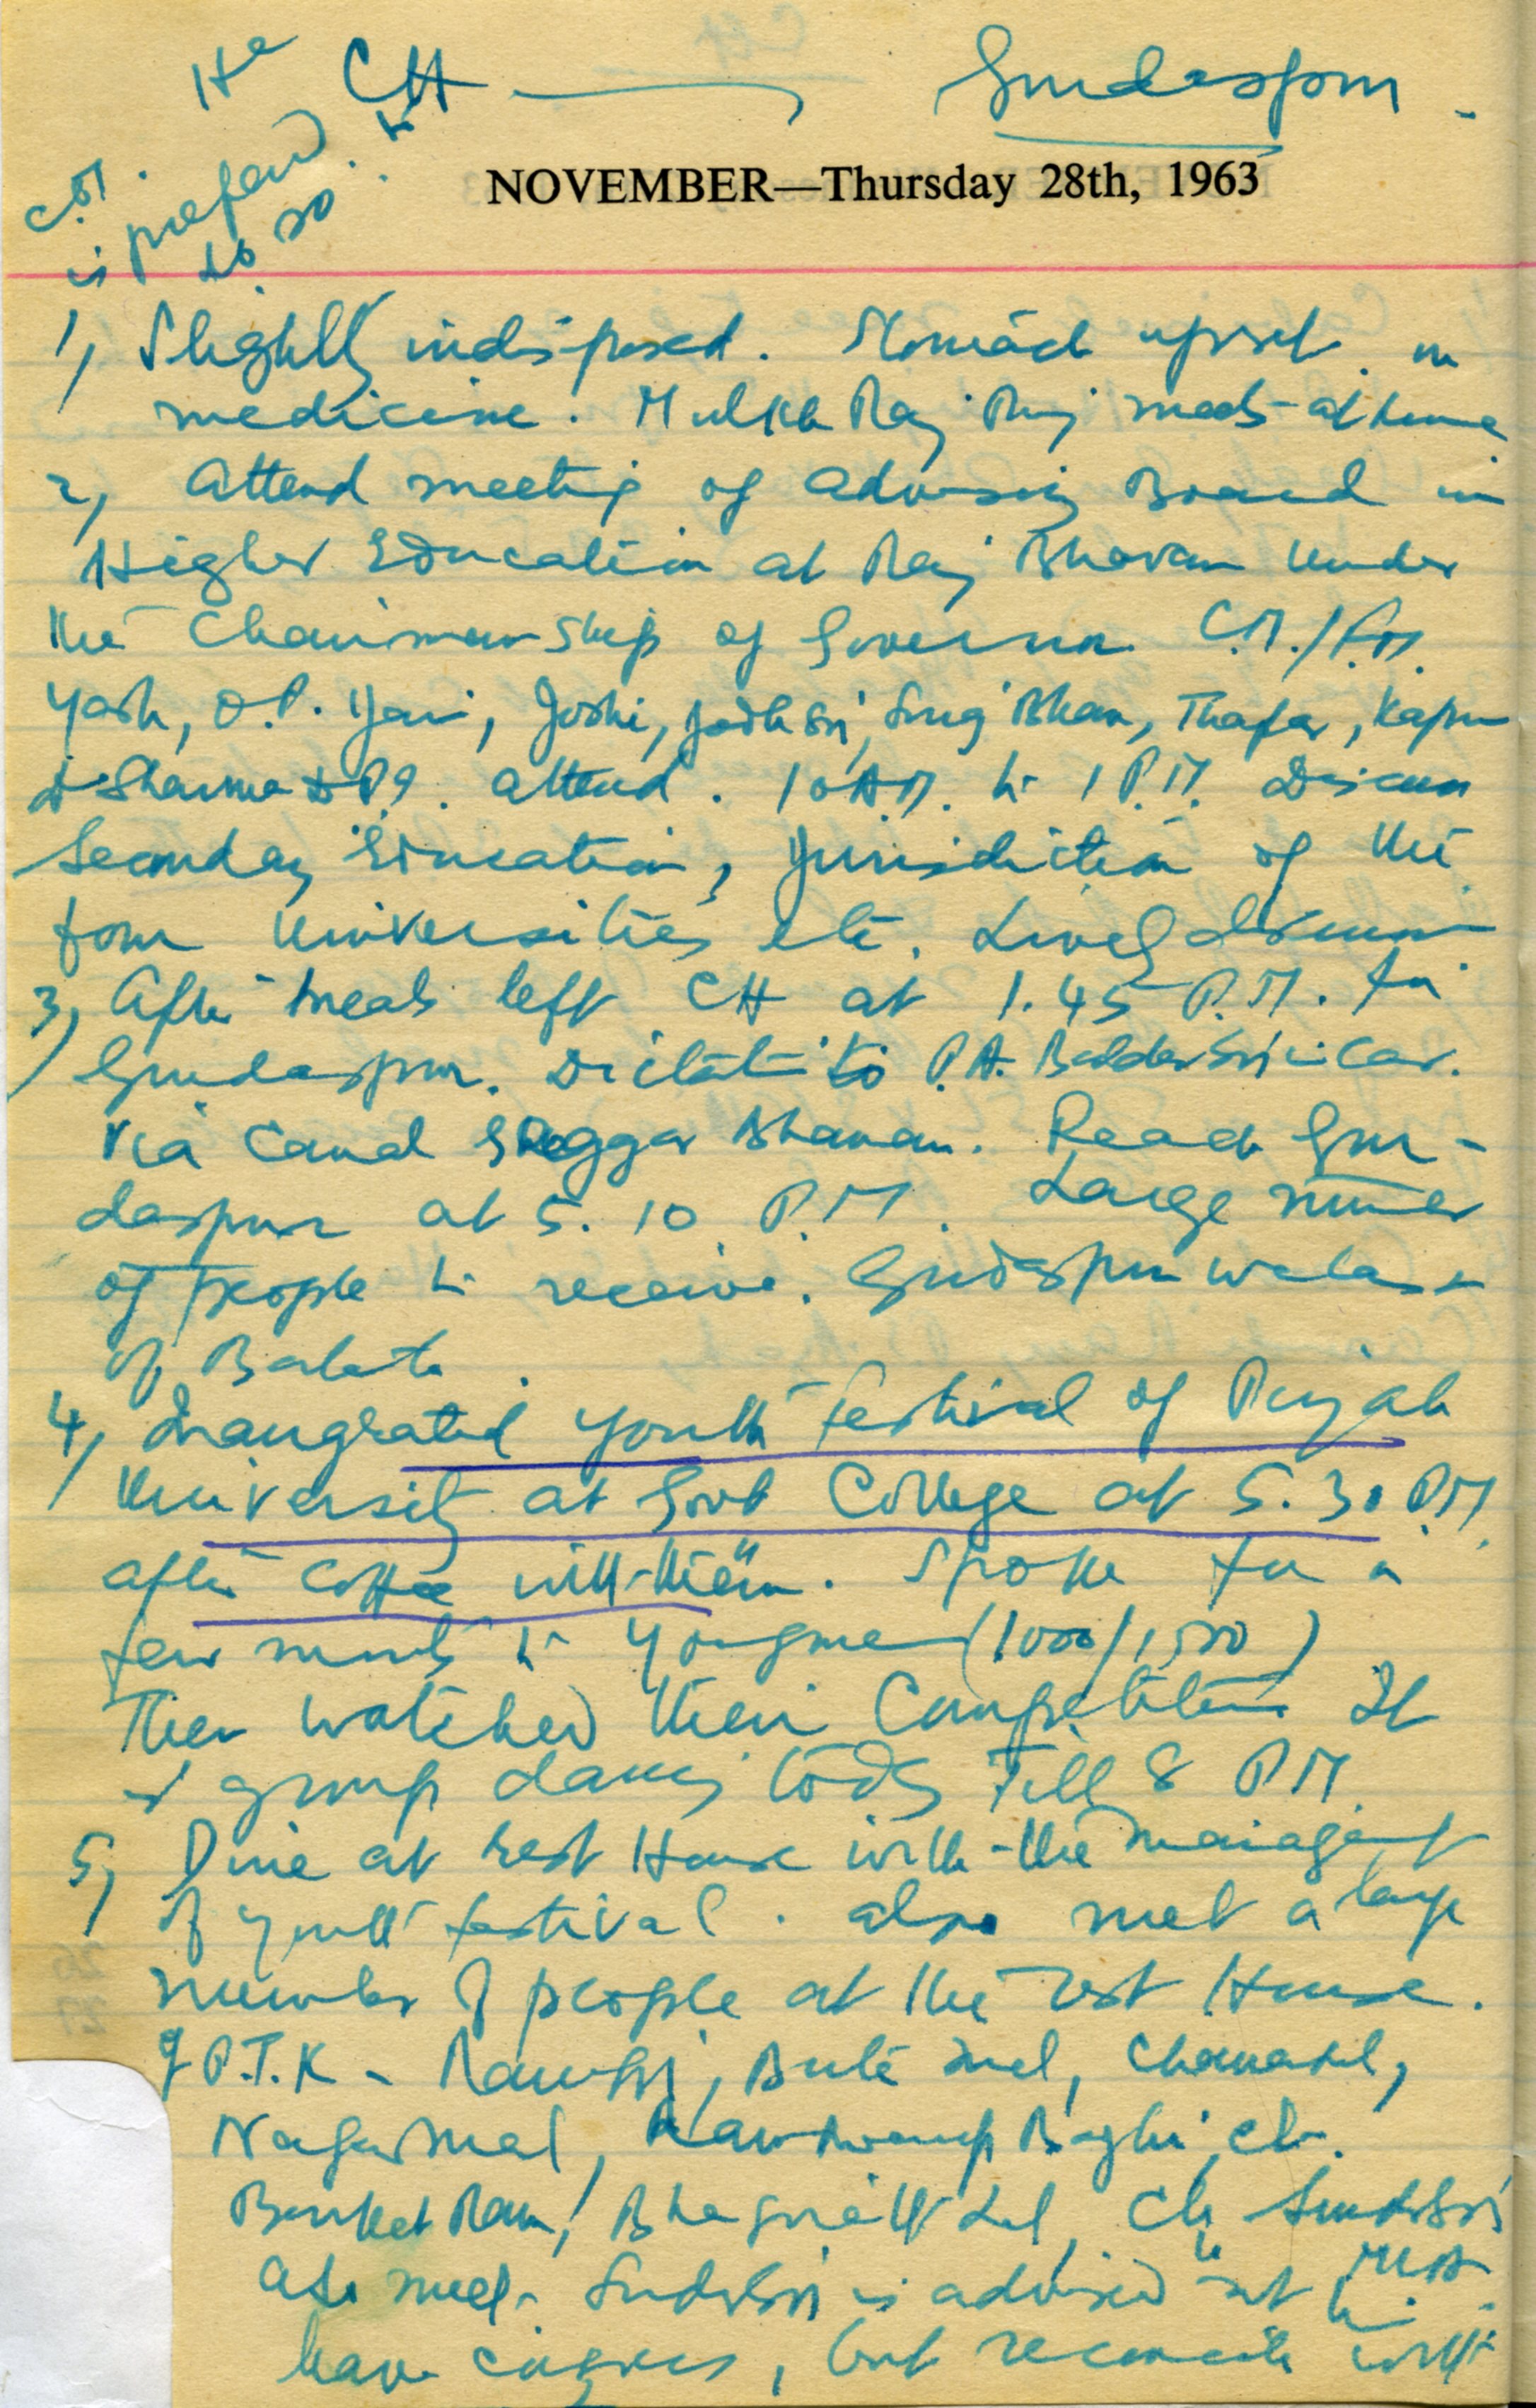 CH — Gurdaspur.
NOVEMBER—Thursday 28th, 1963
He
C.M.
is prepared
to so
1, Slightly indisposed. Stomach upset. on
medicine. Mulkh Raj meets at home
2, Attend meeting of Advisory Board in
Higher Education at Raj Bhavan under
the Chairmanship of Governor. C.M./F.M.
Yash, O.P. Joshi, Bhan, Thapar, Kapur
& Sharma attend. 10 A.M. to 1 P.M. Discuss
Secondary Education, Jurisdiction of the
four Universities etc. Lively discussion
3, After meals left CH at 1.45 P.M. for
Gurdaspur. Dictate to P.A. in Car.
Via Canal Bhavan. Reach Gur-
daspur at 5.10 P.M. Large number
of people to receive. Gurdaspur walas &
of Batala.
4, Inaugrated Youth Festival of Punjab
University at Govt College at 5.30 P.M.
after coffee with them. Spoke for a
few minutes to Youngmen (1000/1500)
Then watched their Competition
& group dances today Till 8 P.M.
5, Dine at Rest House with the management
of youth festival. also met a large
number of people at the rest House.
of P.T.K - Chamanlal,
Nagarmal,
Ram,
Also meet. is advised not to
leave congress, but reconcile with